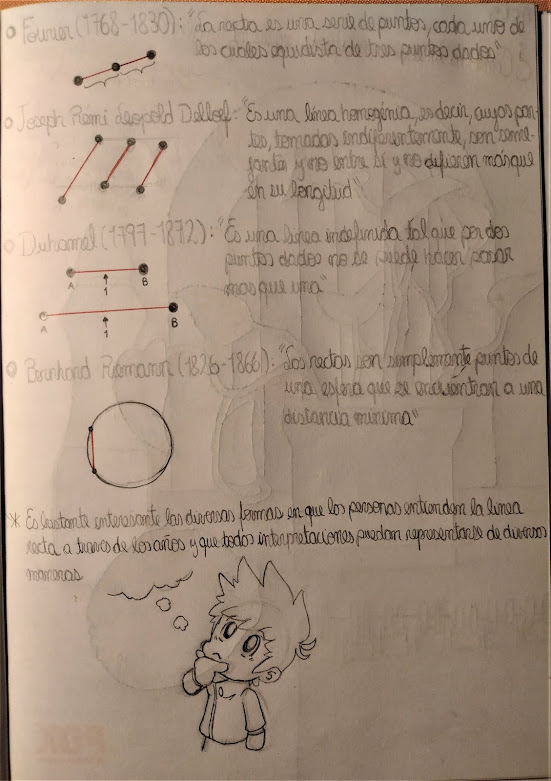 Fourier (1768-1830): "La recta es una serie de puntos, cada uno de
los cuales equidista de tres puntos dados"
Joseph Rémi Léopold Delboef: "Es una línea homogénia, es decir, cuyas par-
tes, tomadas indiferentemente, son seme-
jantes y no entre sí y no difieran más que
en su longitud"
Duhamel (1797-1872): "Es una línea indefinida tal que por dos
puntos dados no se puede hacer pasar
mas que una"
A 1 B
A 1 B
Bernhard Riemann (1826-1866): "Las rectas son simplemente puntos de
una esfera que se encuentran a una
distancia mínima"
* Es bastante interesante las diversas formas en que las personas entienden la línea
recta a través de los años y que todas interpretaciones puedan representarse de diversas
maneras